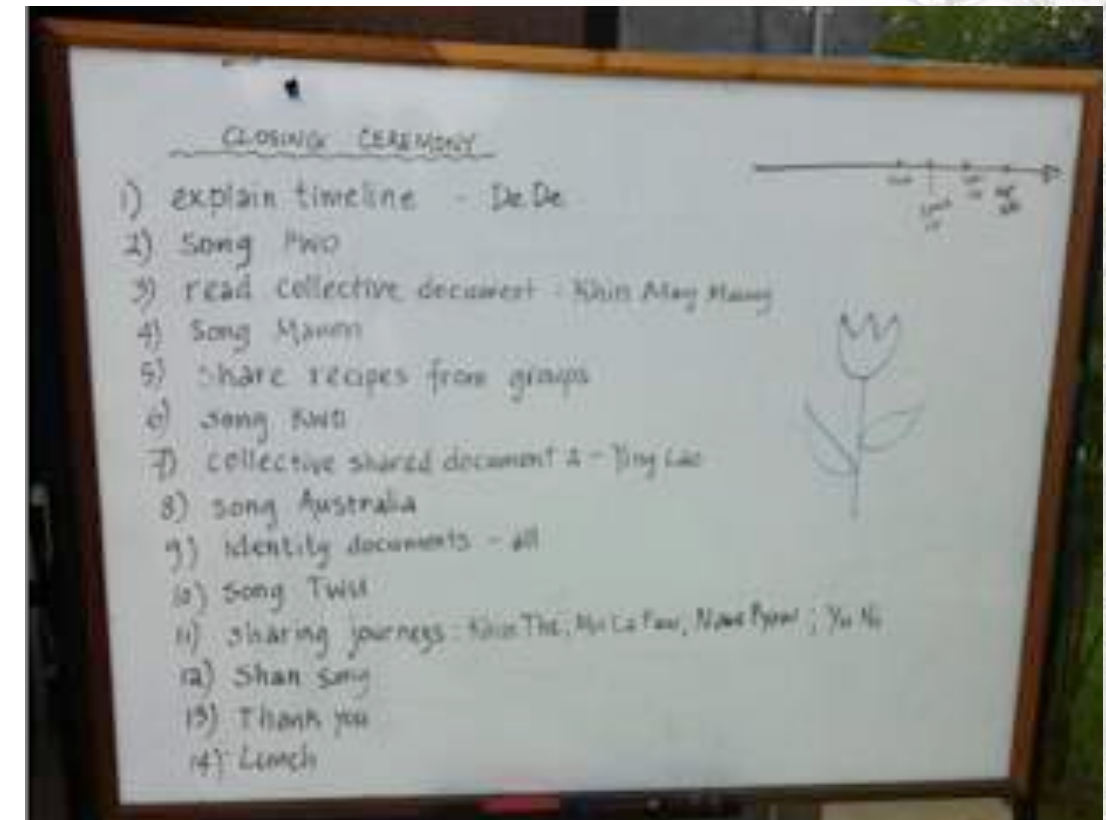 CLOSING CEREMONY
1) explain timeline - De De
2) Song PWO
3) read collective document - Khin May
4) Song
5) Share recipes from groups
6) song KWO
7) collective shared document 2 - Ying Lao
8) song Australia
9) identity documents - all
10) song
11) sharing journeys : Yu Ni
12) Shan song
13) Thank you
14) Lunch